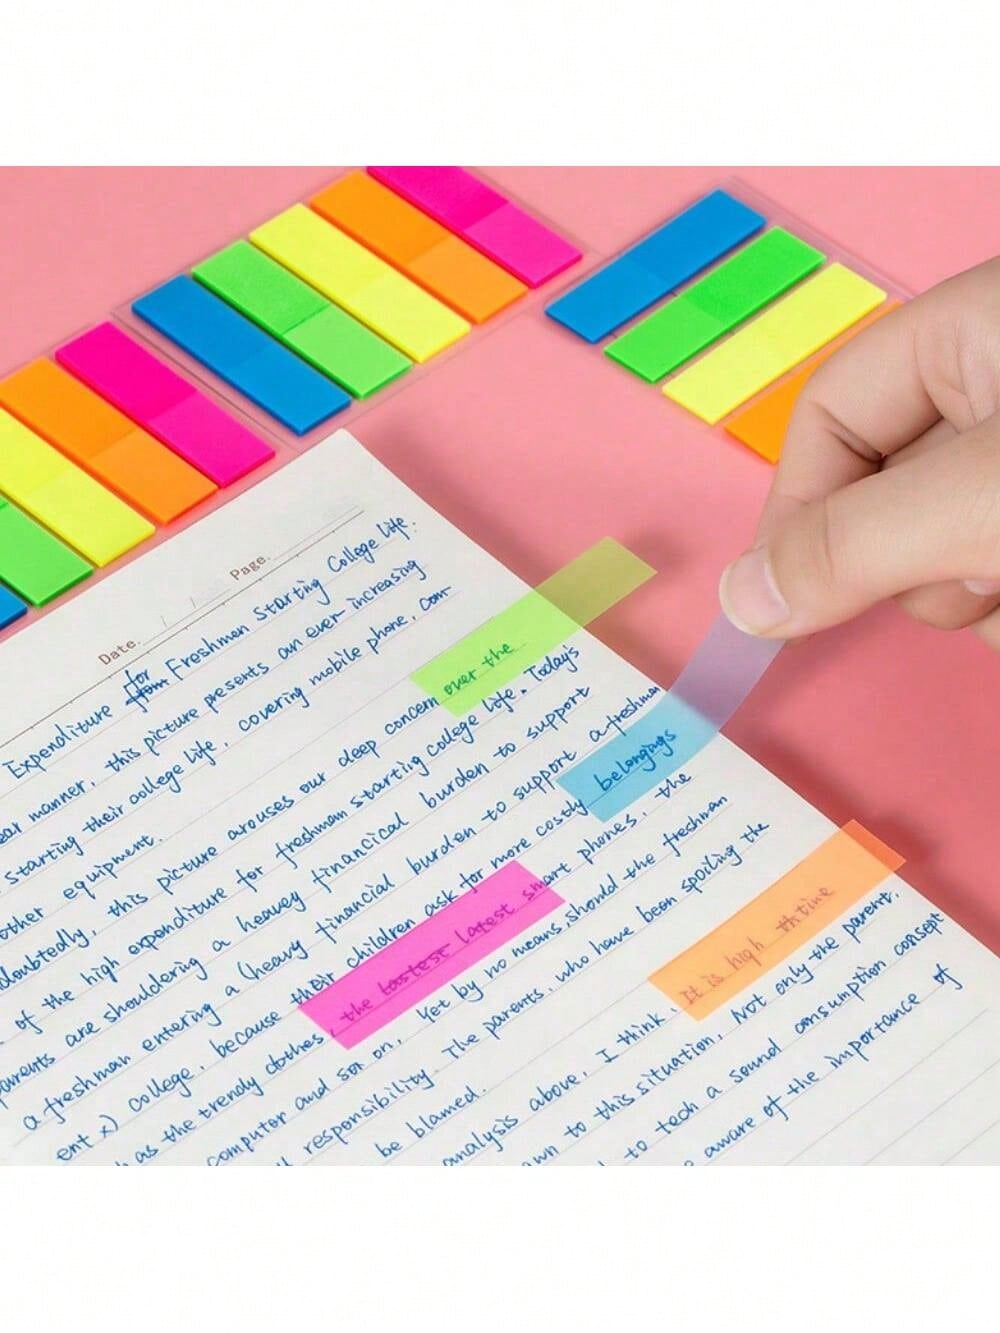 Date. Page.
Expenditure for from Freshmen Starting College life.
ear manner, this picture presents an ever-increasing
starting their college life, covering mobile phone, com-
other equipment.
doubtedly, this picture arouses our deep concern over the
of the high expenditure for freshman starting college life. Today's
parents are shouldering a heavey financical burden to support
a freshman entering a (heavy financial burden to support a freshman
ent x) college, because their children ask for more costly belongings
as the trendy clothes, the lastest latest smart phones, the
computor and so on, Yet by no means should the freshman
responsibility. The parents, who have been spoiling the
be blamed.
analysis above, I think, It is high thtime
own to this situation, Not only the parent,
to tech a sound consumption consept
aware of the importance of